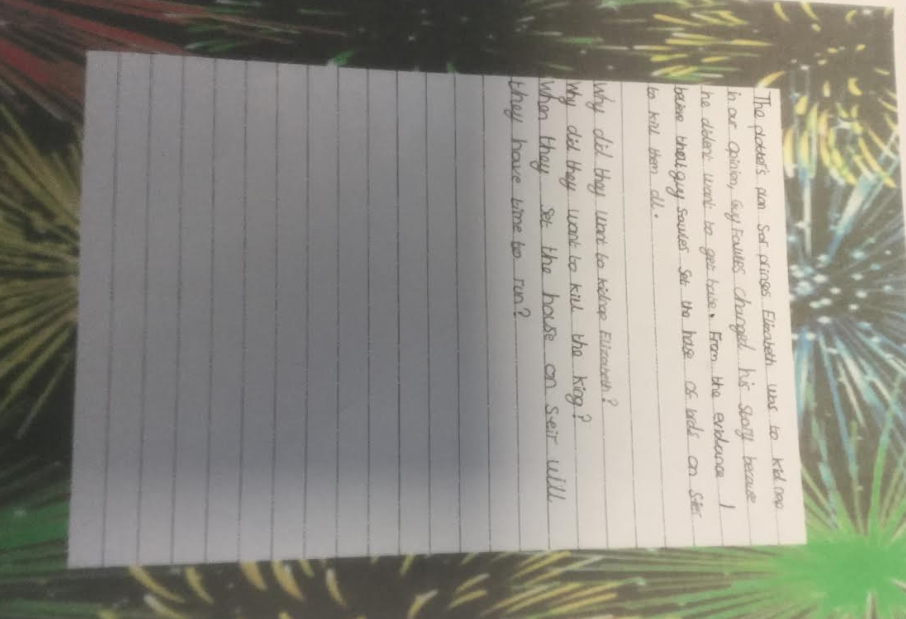 The plotters plan sor prinses Elizabeth was to kidnap
in our opinion, Guy Fawkes changed his story because
he dident want to get home. From the evidence I
belive they guy sawkes set the hase of lords on sier
to kill them all.
Why did they want to kidnap Elizabeth?
Why did they want to kill the king?
When they set the house on seir will
they have time to run?